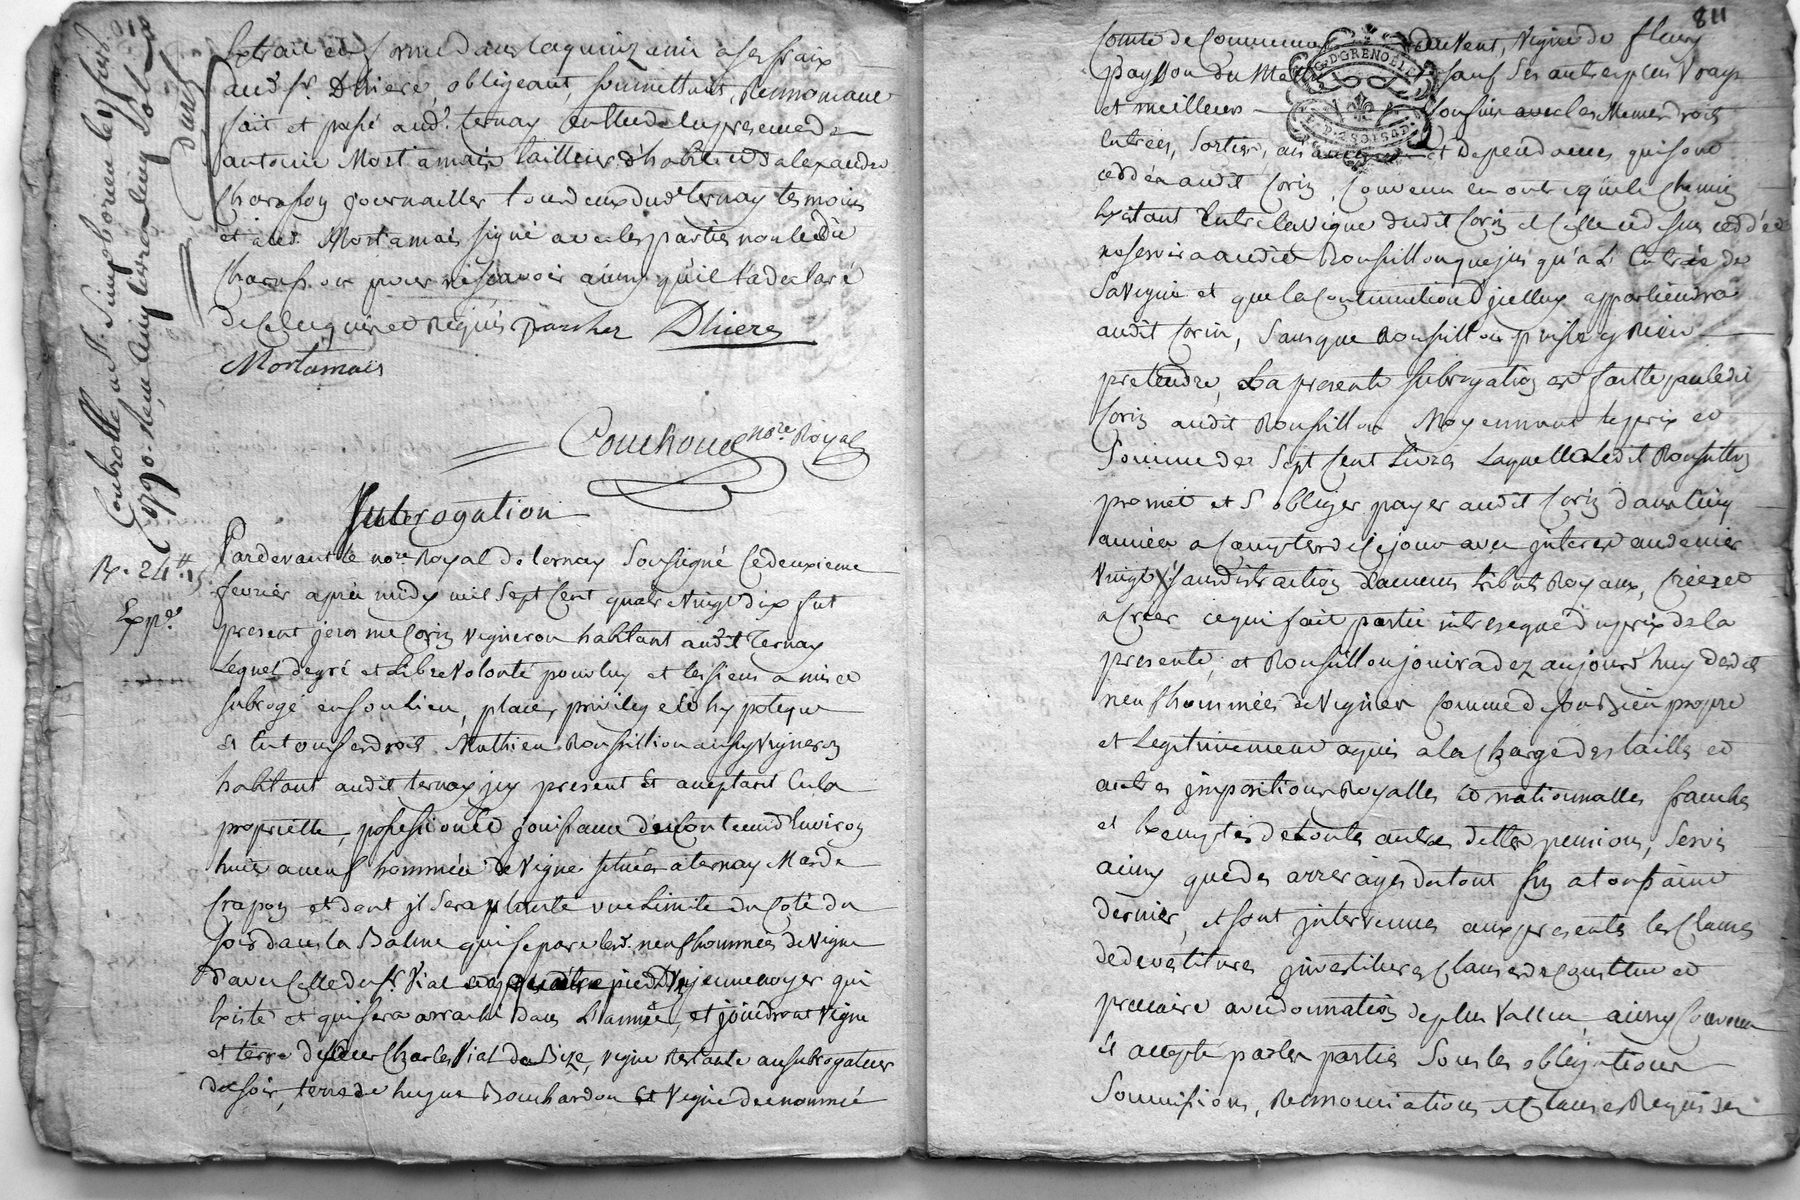 Extrait en forme dans la quinzaine a ses fraix
aud. sr. Dhiere, obligeant, soumettant, Renonceant
fait et passé aud. ternay en l'Etude en presence de
antoine Mortamais tailleur d'habit et d'alexandre
Charasson journallier tous deux dud. ternay temoins
et aud. Mortamais signé avec les parties non ledit
Charasson pour ne scavoir ainsy qu'il l'a declaré
de ce Enquis et Requis Dhiere
Mortamais
Couchoud nore. Royal
Controllé a St. Simphorien le
1790. Reçu
R. 24 tt. 15 s.
Exp.ée
Subrogation
Pardevant le nore. Royal de ternay Soussigné Ce deuxieme
fevrier après midy mil Sept Cent quatre Vingt dix fut
present jerosme Corin Vigneron habitant audit Ternay
Lequel de gré et Libre Volonté pour luy et les siens a mis et
subrogé en son Lieu, place, privilege et hypoteque
Et En tous ses droits Mathieu Roussillion aussy Vigneron
habitant audit ternay jcy present Et aceptant En la
proprietté, possession et Jouissance d'un contenu d'Environ
huit a neuf hommées de Vigne situées a ternay Mas de
Crapon et dont jl sera planté une Limite du Coté du
soir dans la Balme qui separe lesd. neuf hommées de Vigne
d'avec Celle du sr. Vial a quatre pieds d'un jeune noyer qui
Existe et qui sera arraché dans L'année, et joindront Vigne
et terre de sieur Charles Vial de Bize, vigne Restante au subrogateur
de soir, terre de hugue Bouchardon Et Vigne de enommé
811
G. D. GRENOBLE
Comte de Commune du Vent, Vigne de fleury
paÿson du Matin sauf Ses autres plus Vrays
et meilleurs Confins avec les Memes droits
Entrées, Sorties, aisances et Dependances qui sont
ceddés audit Corin, Convenu en outre que le Chemin
Existant Entre la Vigne dudit Corin et Celle cy dessus ceddée
ne servira audit Roussillon que jusqu'a L'Entrée de
Sa Vigne et que la Continuation d'jcelluy appartiendra
audit Corin, Sans que Roussillon puisse y Rien
pretendre, La presente subrogation est faitte par ledit
Corin audit Roussillon Moyennant le prix et
Somme de Sept Cent Livres Laquelle Ledit Roussillon
promet et S'obliger payer audit Corin dans Cinq
années a Compter de Ce jour avec jnteret au denier
Vingt sans distraction d'aucuns tributs Royaux, Créez et
a Créer ce qui fait partie intreseque du prix de la
presente, et Roussillon jouira dez aujourd'huy desdites
neuf hommées de Vignes Comme de son Bien propre
et Legitimement aquis a la Charge des tailles et
autres jmpositions Royalles et nationnalles franches
et Exemptes de toute autres dettes pensions, Servis
ainsy que des arrerages du tout jusqu'a Toussaint
dernier, et sont jntervenues aux presentes les Clauses
de devestitures jnvestitures Clauses de constitut et
precaire avec donnation de plus Valleur, ainsy Convenu
Et accepté par les parties Sous les obligations
Soumissions, Renonciations et Clauses Requises